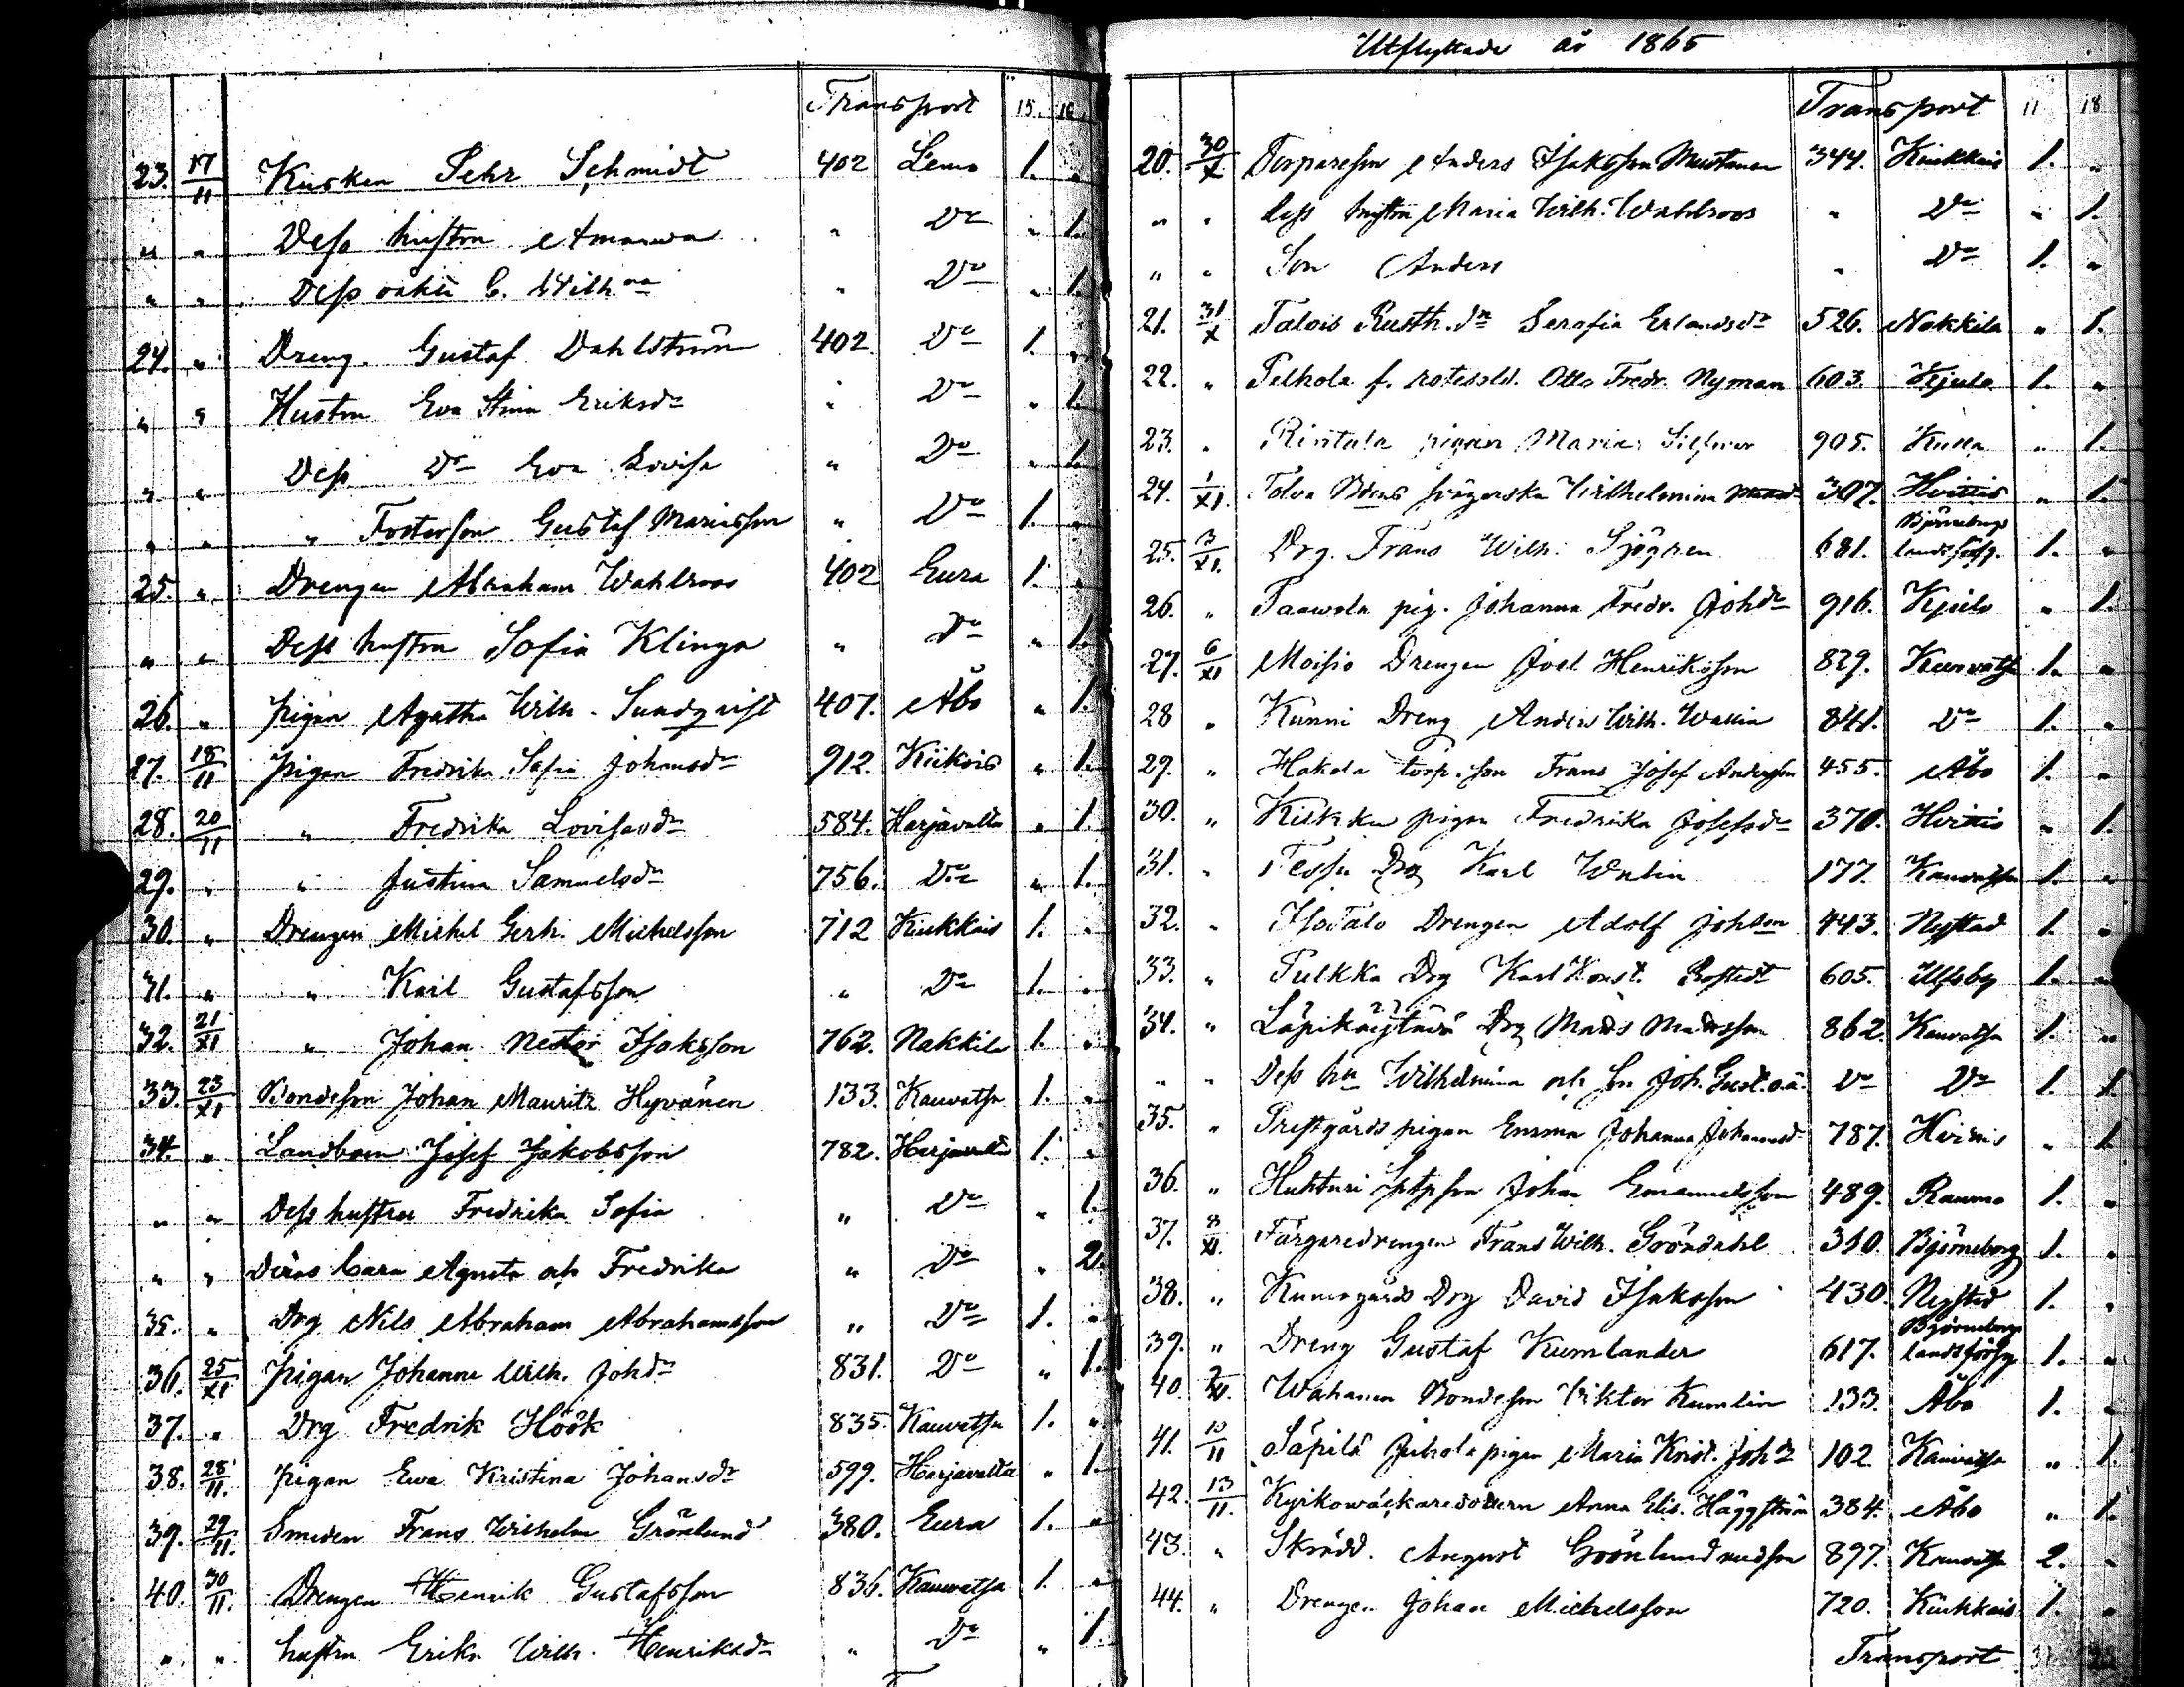 Transport 15. 16.
23. 17/11 Kusken Pehr Schmidt 402 Lemo 1. "
" " Dess hustru Amanda " Do " 1.
" " Dess doktr C. Wilhna " Do " 1.
24. " Dreng. Gustaf Dahlström 402 Do 1. "
" " Hustru Eva Stina Eriksdr " Do " 1.
" " Dess Dr Eva Lovisa " Do " 1.
" " " Fosterson Gustaf Mariasson " Do 1. "
25. " Drengen Abraham Wahlroos 402 Eura 1. "
" " Dess hustru Sofia Klinga " Do " 1.
26. " Pigan Agatha Wilh. Sundqvist 407. Åbo " 1.
27. 18/11 Pigan Fredrika Sofia Johansdr 912. Kiikois " 1.
28. 20/11 " Fredrika Lovisasdr 584. Harjavalta " 1.
29. " " Justina Samuelsdr 756. Do " 1.
30. " Drengen Michel Gerh. Michelsson 712 Kiukkais 1. "
31. " " Karl Gustafsson " Do 1. "
32. 21/XI " Johan Nestor Isaksson 762. Nakkila 1. "
33. 23/XI Bondeson Johan Mauritz Hyvönen 133. Kauvatsa 1. "
34. " Landboen Josef Jakobsson 782. Harjavalta 1. "
" " Dess hustru Fredrika Sofia " Do " 1.
" " Deras barn Agneta och Fredrika " Do " 2.
35. " Drg Nils Abraham Abrahamsson " Do 1. "
36. 25/XI Pigan Johanna Wilh. Johdr 831. Do " 1.
37. " Drg Fredrik Höök 835. Kauvatsa 1. "
38. 28/11. Pigan Ewa Kristina Johansdr 599. Harjavalta " 1.
39. 29/11. Smeden Frans Wilhelm Grönlund 380. Eura 1. "
40. 30/11. Drengen Henrik Gustafsson 836. Kauvatsa 1. "
" " hustru Erika Wilh. Henriksdr " Do " 1.
Utflyttade år 1865
Transport 17 18
20. 30/X. Torpareson Anders Isaksson Mustanen 344. Kiukkais 1. "
" " dess hustru Maria Wilh. Wahlroos " Do " 1.
" " Son Anders " Do 1. "
21. 31/X Talois Rusth. dr Serafia Erlandsdr 526. Nakkila " 1.
22. " Pelhola f. rotesold. Otto Fredr. Nyman 603. Kjulo 1. "
23. " Rintala pigan Maria 905. " 1.
24. 1/XI. Tolva Bdens svägerska Wilhelmina 307. Hvittis " 1.
25. 3/XI. Drg. Frans Wilh. Sjögren 681. Björneborgs landsförs. 1. "
26. " Paavola pig. Johanna Fredr. Johdr 916. Kjulo " 1.
27. 6/XI Moisio Drengen Joel Henriksson 829. Kauvatsa 1. "
28 " Kunni Dreng Anders Wilh. Wallin 841. Do 1. "
29. " Hakola torp. son Frans Josef Andersson 455. Åbo 1. "
30. " pigan Fredrika Josefsdr 370. Hvittis " 1.
31. " Drg Karl 177. Kauvatsa 1. "
32. " IsoTalo Drengen Adolf Johson 443. Nystad 1. "
33. " Pulkka Drg Karl Konst. 605. Ulfsby 1. "
34. " Drg Mads Madsson 862. Kauvatsa 1. "
" " Dess hu Wilhelmina och son Joh. Gust. o.ä. Do Do 1. 1.
35. " Prestgårds pigan Emma Johanna Johansdr 787. Hvittis " 1.
36. " Huhturi Johan Emanuelsson 489. Raumo 1. "
37. 8/XI. Färgaredrengen Frans Wilh. Gröndahl 310. Björneborg 1. "
38. " Drg David Isaksson 430. Nystad 1. "
39. " Dreng Gustaf Kumlander 617. Björneborgs landsförsg. 1. "
40. Bondeson Viktor Kumlin 133. Åbo 1. "
41. 10/11 Säpilä Juhola pigan Maria Krist. Johdr 102 Kauvatsa " 1.
42. 13/11. Kyrkowäckaredottern Anna Elis. Häggström 384. Åbo " 1.
43. " Skrädd. August Grönlund med son 897. Kauvatsa 2. "
44. " Drengen Johan Michelsson 720. Kiukkais 1. "
Transport